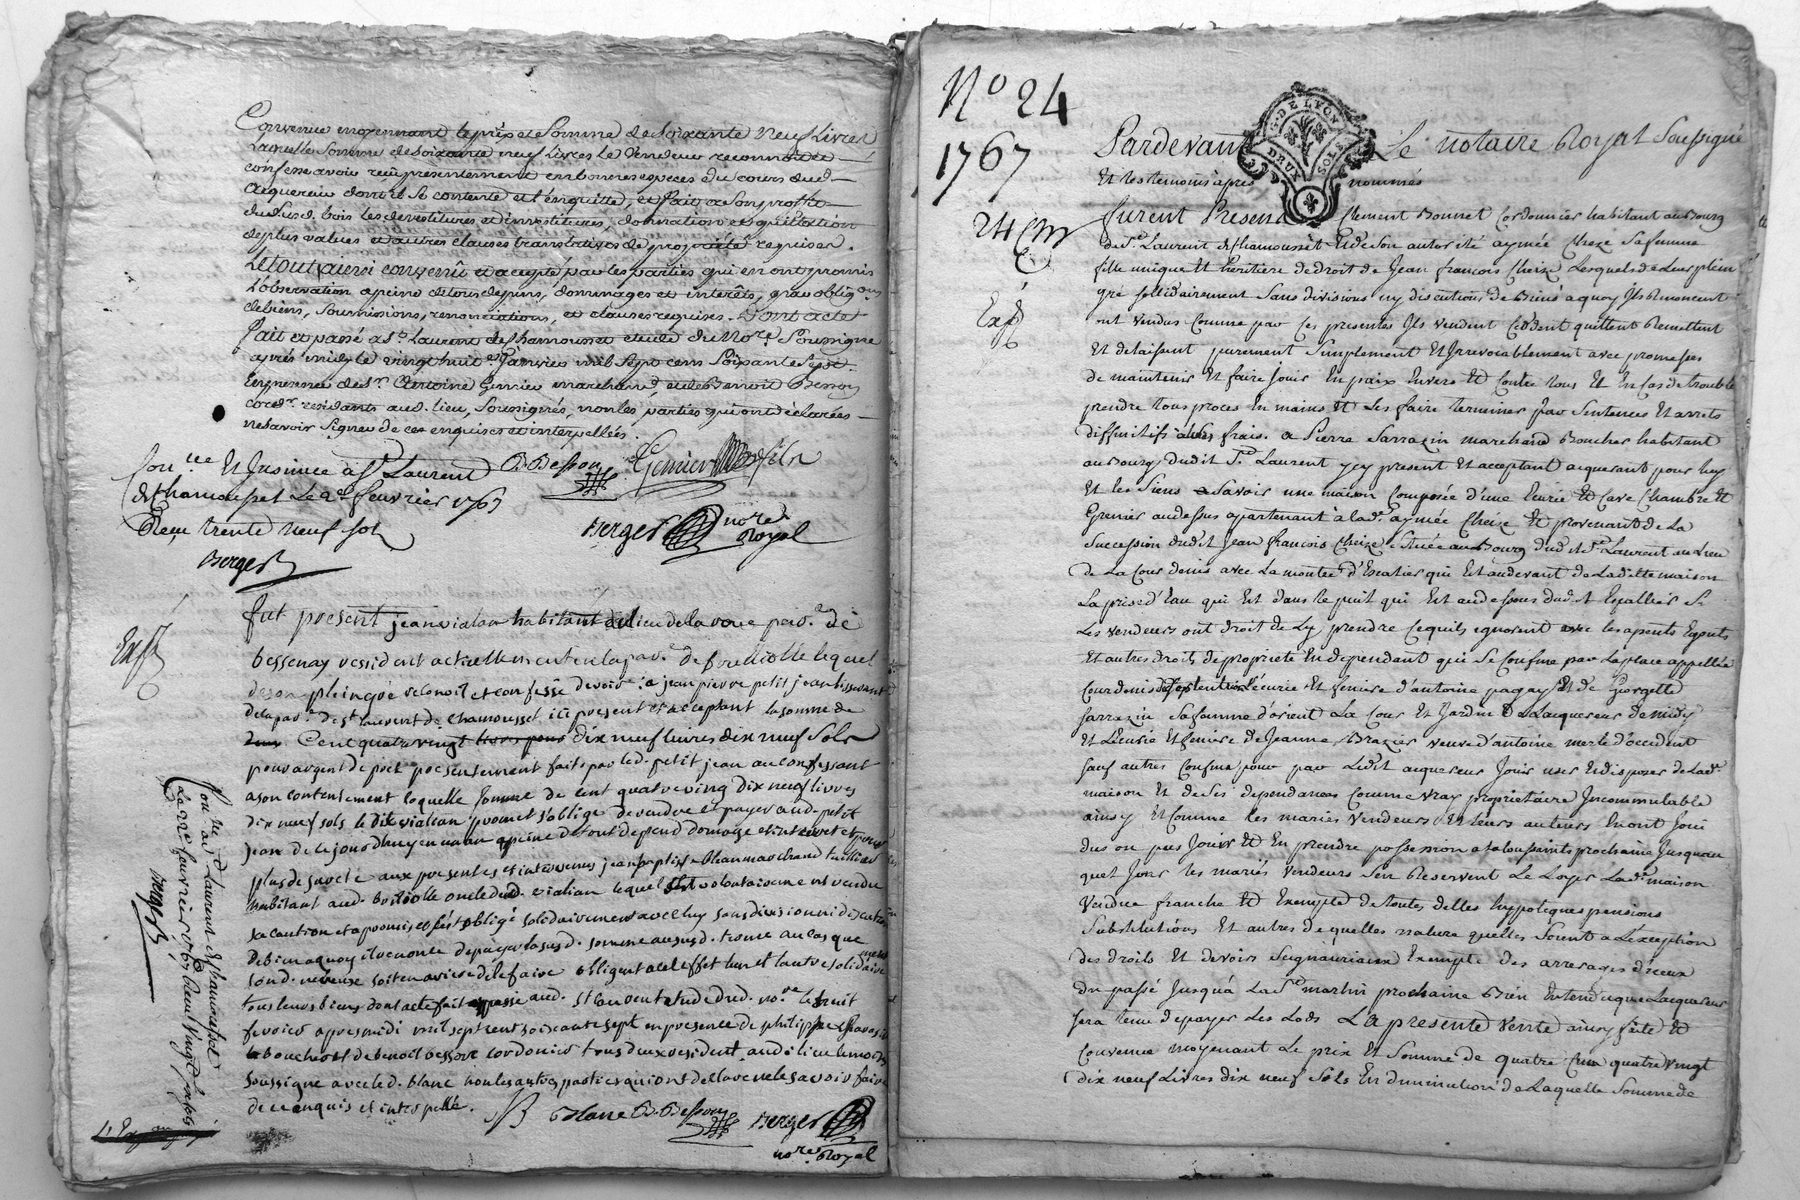 Convenue moyennant le prix et Somme de Soixante Neuf Livres
Laquelle Somme de Soixante neuf Livres le Vendeur reconnoit et
confesse avoir reçu presentement en bonnes especes du cours dud.
acquereur dont il se contente et l'en quitte, et fait a son proffit
du Susd. bois les devestitures et investitures, donnation et quittation
de plus values et autres clauses translatives de proprieté requises.
Le tout ainsi convenû et accepté par les parties qui en ont promis
L'observation a peine de tous depens, dommages et interêts, par oblig.ons
de biens, soumissions, renonciations, et clauses requises. Dont acte
fait et passé a St. Laurent de Chamousset etude du No.re Soussigné
après midy le vingt huit Janvier mil Sept cent Soixante Sept.
En presence de Sr. Antoine Gernier marchand, et de Benoit Besson
cord.r residants aud. lieu, Soussignés, non les parties qui ont déclarées
ne savoir Signer de ce enquises et interpellées.
B Besson Gernier fils
Con.lle Et Insinué à St Laurent
de Chamousset Le 2e feuvrier 1767
Reçu trente neuf sols
Berger
Berger no.re Royal
Exp
fut present jean vialan habitant du lieu de la roue par.e de
bessenay residant actuellement en la par.e de brulliolle lequel
de son plein gré reconoit et confesse devoir a jean pierre petit jean tisserant
de la par.e de st laurent de chamousset ici present et acceptant la somme de
Cent quatre vingt dix neuf livres dix neuf Sols
pour argent de pret presentement fait par led. petit jean au confessant
a son contentement laquelle somme de cent quatre ving dix neuf livres
dix neuf sols le dit vialian promet et s'oblige de rendre et payer aud. petit
jean de ce jourdhuy en un an a peine de tout depend domage et interet et pour
plus de sureté aux presentes est intervenus jean baptiste blanc marchand tuillier
habitant aud. brulliolle oncle dud. vialian lequel s'est volontairement rendu
sa caution et a promis et s'est obligé solidairement avec luy sans division ni discution
de bien a quoy il renonce de payer la susd. somme au susd. terme au cas que
son d. neveux soit en arriere de le faire obligent a cet effet l'un et l'autre solidairement
tous leurs biens dont acte fait et passé aud. st laurent etude dud. no.re le huit
fevrier apres midi mil sept cent soixante sept en presence de philippe
boucher et de benoit besson cordonier tous deux resident aud. lieu
soussigné avec led. blanc non les autres parties qui ont declaré ne le savoir faire
de ce enquis et interpellé.
JB blanc B. Besson Berger
no.re Royal
Con.lle a St Laurent de Chamousset
Le 22e feuvrier 1767 Reçu vingt six sols
Berger
No 24
1767
24
Exp
G. DE LYON
DEUX SOLS
Pardevant Le notaire Royal Soussigné
Et les temoins après nommés
furent Presens Clement Bonnet Cordonnier habitant au Bourg
de St Laurent de Chamousset Et de Son autorité aymée Cheize Sa femme
fille unique Et heritiere de droit de Jean françois Cheize Lesquels de Leur plein
gré Sollidairement Sans division ny discution de Biens a quoy Ils Renoncent
ont vendus Comme par Ces presentes Ils vendent Cèddent quittent Remettent
Et delaissent purement Simplement Et Irrevocablement avec promesses
de maintenir Et faire Jouir En paix Envers Et Contre tous Et En Cas de trouble
prendre tous procès En mains Et Les faire terminer par Sentences Et arrets
diffinitifs à leurs frais. a Pierre Sarrazin marchand Boucher habitant
au Bourg dudit St. Laurent jcy present Et acceptant acquerant pour luy
Et les Siens a Savoir une maison Composée d'une Ecurie Et Cave Chambre Et
Grenier au dessus apartenant à lad.e aymée Cheize Et provenant de La
Succession dudit Jean françois Cheize, Située au Bourg dudit St. Laurent au Lieu
de La Cour denis avec La montée d'Escalier qui Est au devant de Ladite maison
La prise d'Eau qui Est dans le puit qui Est au dessous dud.t Escallier Si
Les vendeurs ont droit de L'y prendre Ce qu'ils ignorent avec les apents Egouts
Et autres droits de proprieté En dependant qui Se Confine par La place appellée
Cour denis de Septentrion L'écurie Et feniere d'antoine pagay Et de Georgette
Sarrazin Sa femme d'orient La Cour Et Jardin De Lacquereur de midy
Et L'écurie Et feniere de Jeanne Brazier veuve d'antoine merle d'occident
Sauf autres Confins pour par Ledit acquereur Jouir user Et disposer de Lad.e
maison Et de Ses dependances Comme vray proprietaire Incommutable
ainsy Et Comme Les mariés Vendeurs Et leurs auteurs En ont Joui
dus ou pus Jouir Et En prendre possession a la toussaints prochaine Jusqu'au
quel Jour les mariés Vendeurs S'en Reservent Le Loyer Lad.e maison
Vendue franche Et Exempte de toutes dettes hypoteques pensions
Substitutions Et autres de quelles nature quelles Soient a L'exception
des droits Et devoirs Seigneuriaux Exempte des arrerages d'iceux
du passé Jusqu'à La St martin prochaine Bien Entendu que Lacquereur
Sera tenu de payer Les Lods La presente Vente ainsy faite Et
Convenue moyenant Le prix Et Somme de quatre Cent quatre vingt
dix neuf Livres dix neuf Sols En diminution de Laquelle Somme de